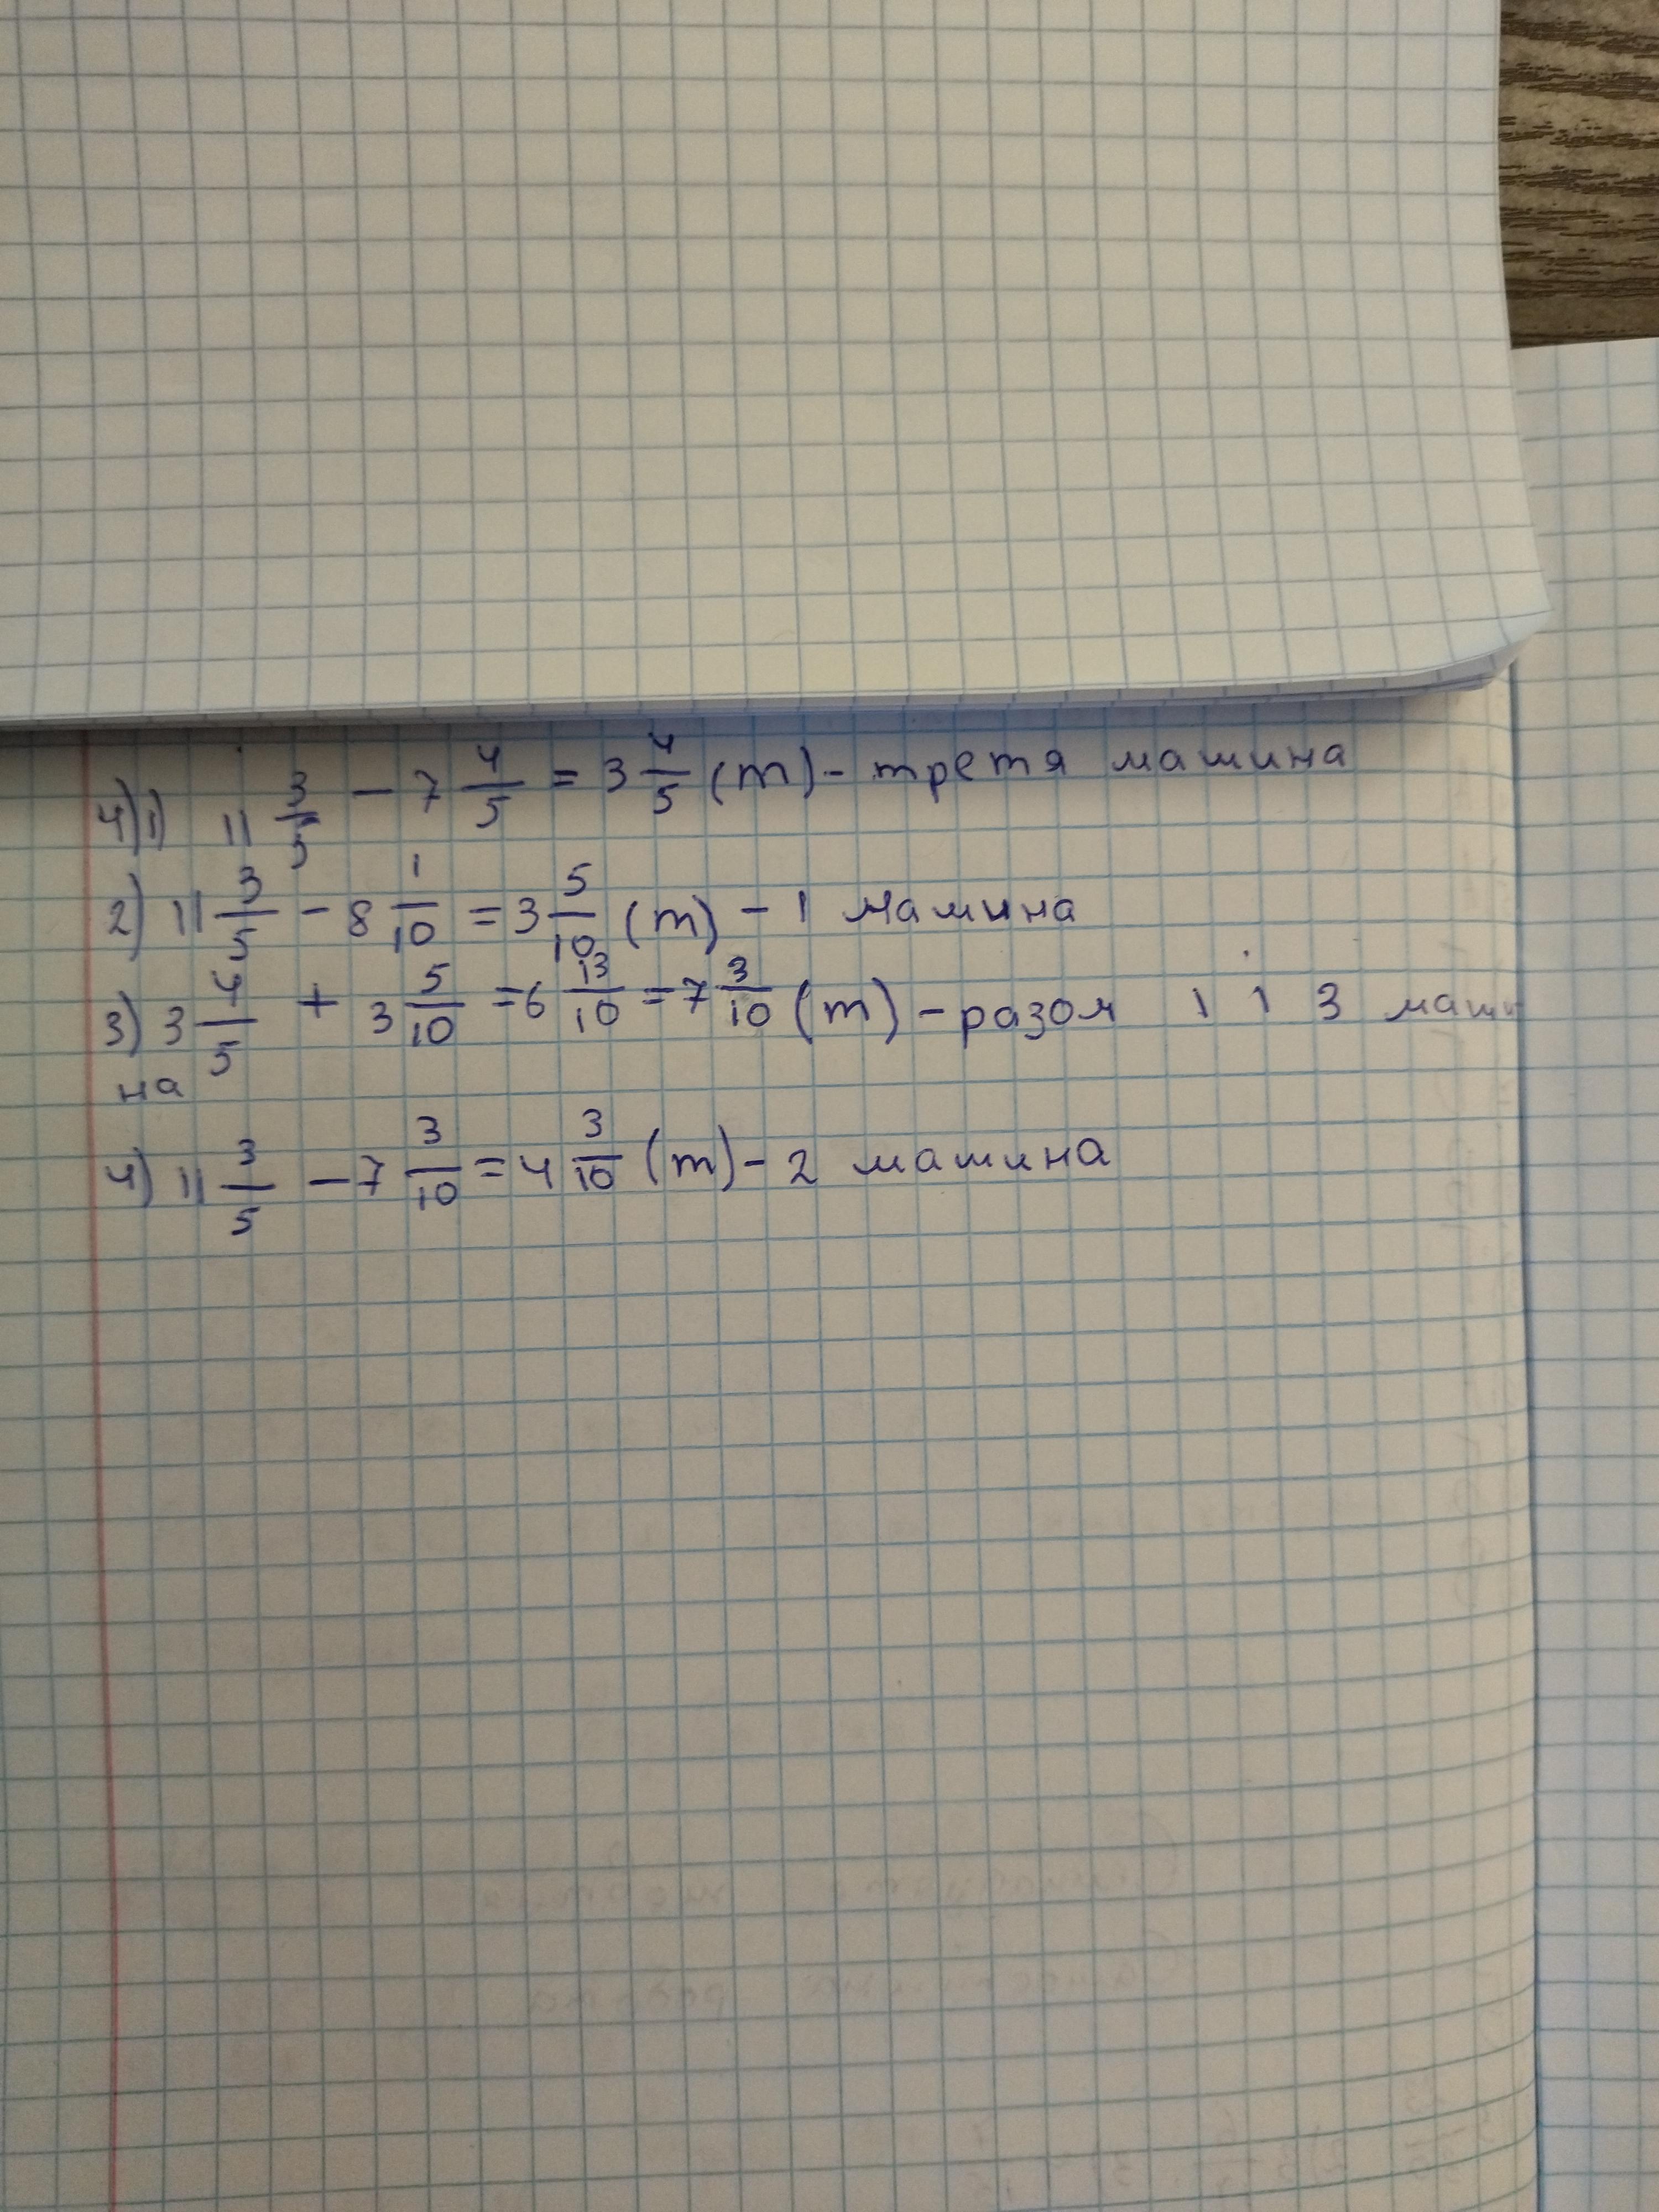 4)1) 11 3/5 - 7 4/5 = 3 4/5 (т) - третя машина
2) 11 3/5 - 8 1/10 = 3 5/10 (т) - 1 машина
3) 3 4/5 + 3 5/10 = 6 13/10 = 7 3/10 (т) - разом 1 і 3 маши
на
4) 11 3/5 - 7 3/10 = 4 3/10 (т) - 2 машина